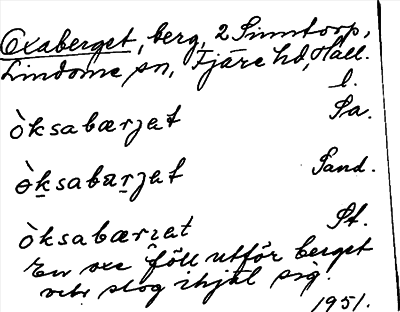 Oxaberget, berg, 2 Sinntorp,
Lindome sn, Fjäre hd, Hall.
l.
òksabærjat Sa.
òksabarjat Sand.
òksabærjat St.
En oxe föll utför berget
och slog ihjäl sig.
1951.